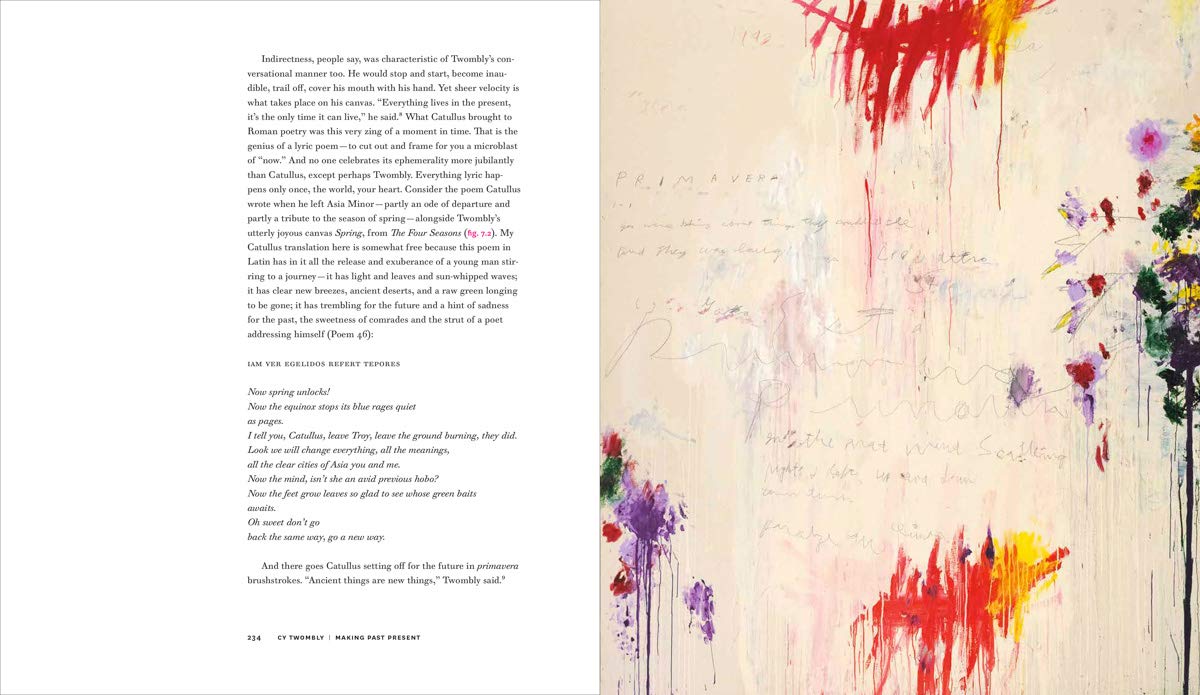 Indirectness, people say, was characteristic of Twombly's con-
versational manner too. He would stop and start, become inau-
dible, trail off, cover his mouth with his hand. Yet sheer velocity is
what takes place on his canvas. “Everything lives in the present,
it's the only time it can live,” he said.⁸ What Catullus brought to
Roman poetry was this very zing of a moment in time. That is the
genius of a lyric poem—to cut out and frame for you a microblast
of “now.” And no one celebrates its ephemerality more jubilantly
than Catullus, except perhaps Twombly. Everything lyric hap-
pens only once, the world, your heart. Consider the poem Catullus
wrote when he left Asia Minor—partly an ode of departure and
partly a tribute to the season of spring—alongside Twombly's
utterly joyous canvas Spring, from The Four Seasons (fig. 7.2). My
Catullus translation here is somewhat free because this poem in
Latin has in it all the release and exuberance of a young man stir-
ring to a journey—it has light and leaves and sun-whipped waves;
it has clear new breezes, ancient deserts, and a raw green longing
to be gone; it has trembling for the future and a hint of sadness
for the past, the sweetness of comrades and the strut of a poet
addressing himself (Poem 46):
IAM VER EGELIDOS REFERT TEPORES
Now spring unlocks!
Now the equinox stops its blue rages quiet
as pages.
I tell you, Catullus, leave Troy, leave the ground burning, they did.
Look we will change everything, all the meanings,
all the clear cities of Asia you and me.
Now the mind, isn't she an avid previous hobo?
Now the feet grow leaves so glad to see whose green baits
awaits.
Oh sweet don't go
back the same way, go a new way.
And there goes Catullus setting off for the future in primavera
brushstrokes. “Ancient things are new things,” Twombly said.⁹
234 CY TWOMBLY | MAKING PAST PRESENT
PRIMAVERA
and they
Primavera
the
up and down